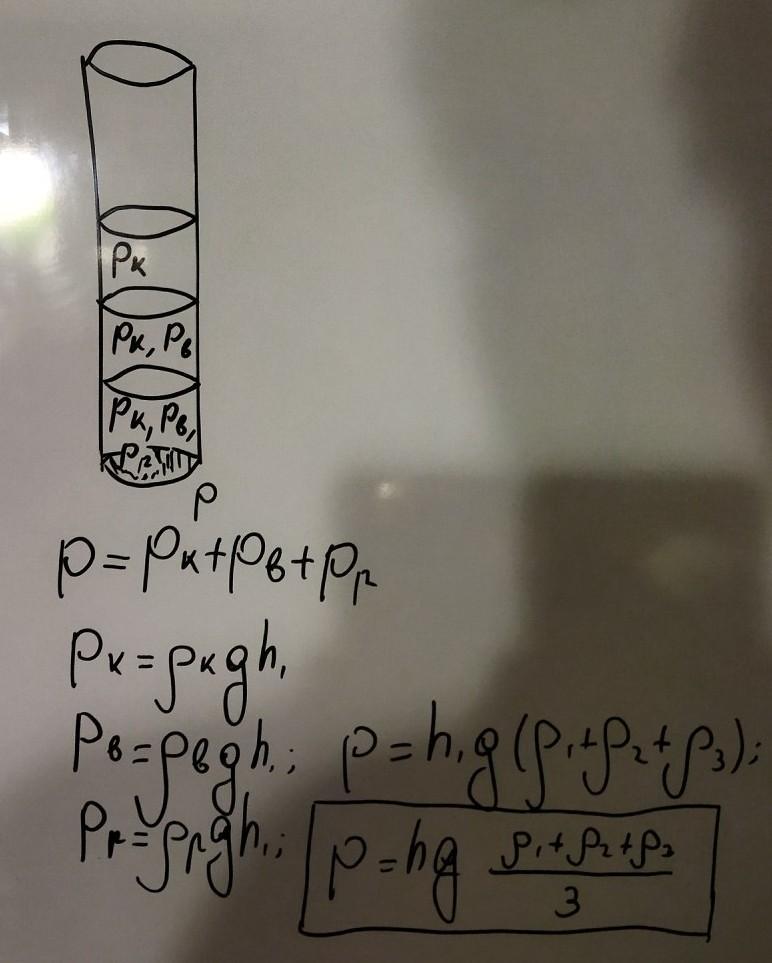 Pк
Pк, Pв
Pк, Pв,
Pр
P
P = Pк + Pв + Pр
Pк = ρк g h₁
Pв = ρв g h₁; P = h₁ g (ρ₁ + ρ₂ + ρ₃);
Pр = ρр g h₁;
P = hg (ρ₁ + ρ₂ + ρ₃)/3